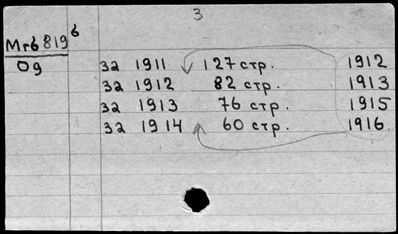 3
Mrб 819б
Од
за 1911 127 стр. 1912
за 1912 82 стр. 1913
за 1913 76 стр. 1915
за 1914 60 стр. 1916